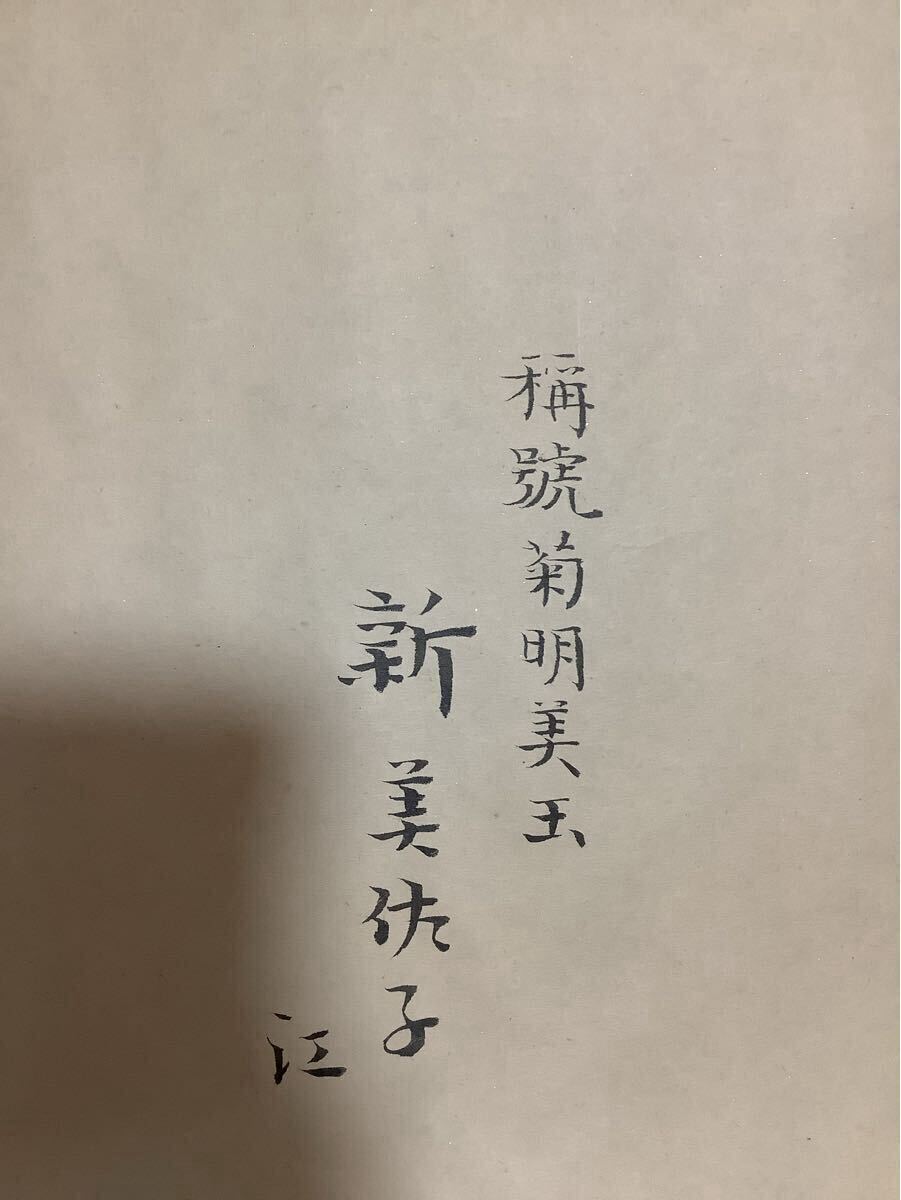 稱號菊明美玉
新美佐子
江